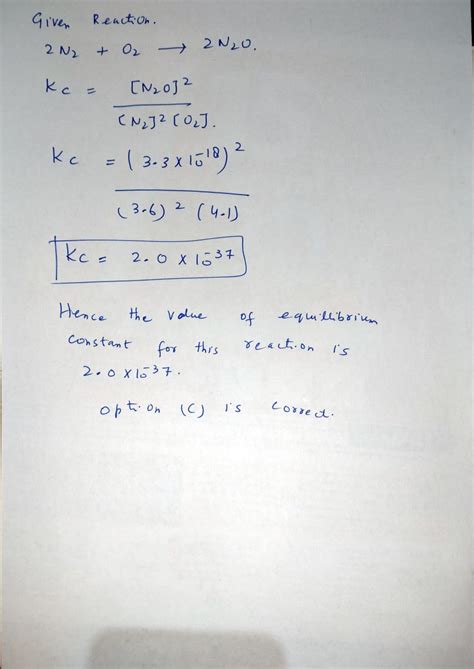 Given Reaction.
2 N2 + O2 → 2 N2O.
Kc = [N2O]2
[N2]2 [O2].
Kc = (3.3 x 10-18) 2
(3.6) 2 (4.1)
Kc = 2.0 x 10-37
Hence the value of equillibrium
constant for this reaction is
2.0 x 10-37.
option (C) is correct.